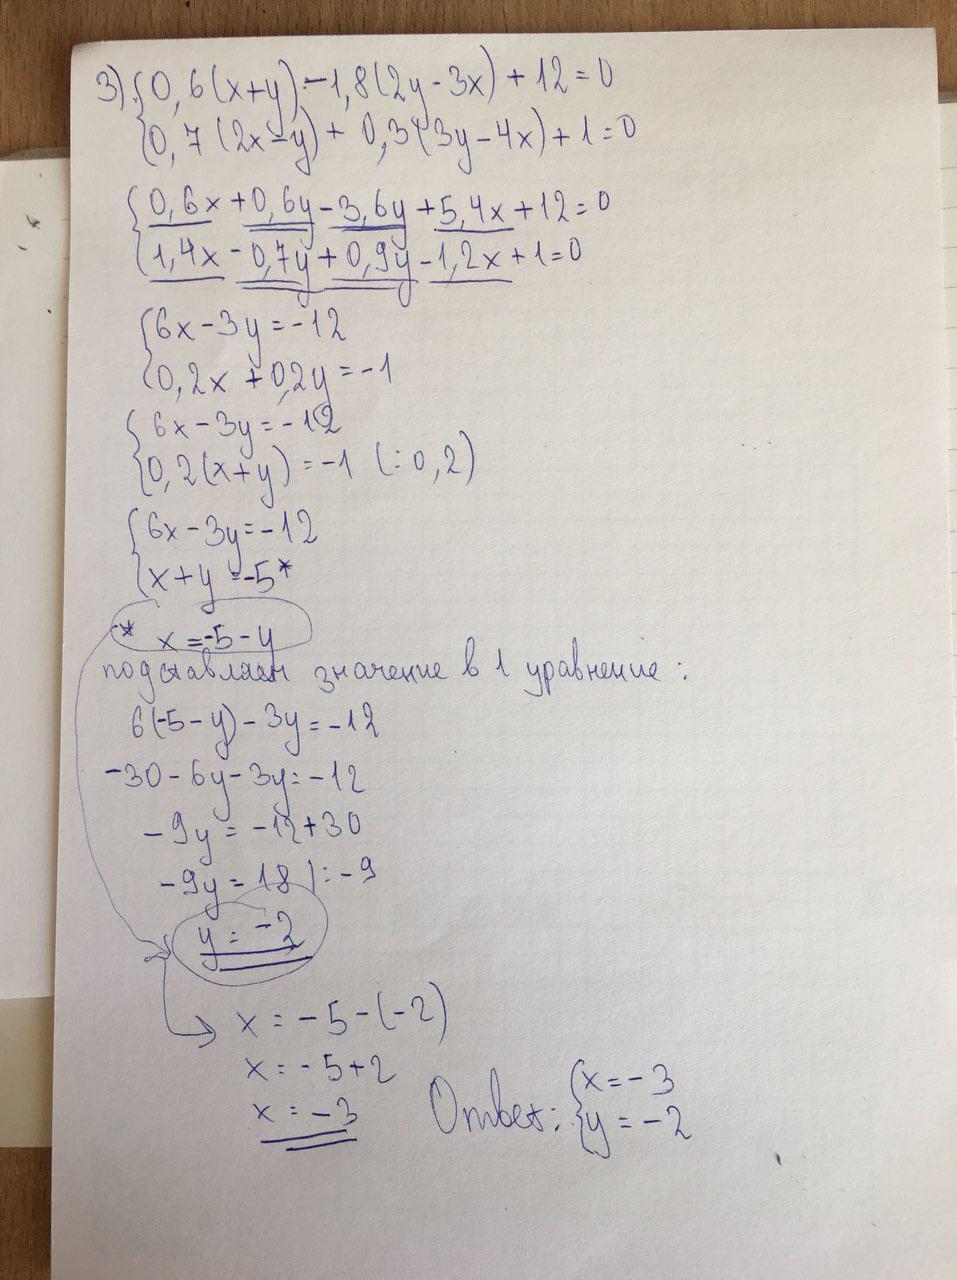 3) {0,6(x+y)-1,8(2y-3x)+12=0
{0,7(2x-y)+0,3(3y-4x)+1=0
{0,6x+0,6y-3,6y+5,4x+12=0
{1,4x-0,7y+0,9y-1,2x+1=0
{6x-3y=-12
{0,2x+0,2y=-1
{6x-3y=-12
{0,2(x+y)=-1 (:0,2)
{6x-3y=-12
{x+y=-5*
* x=-5-y
подставляем значение в 1 уравнение:
6(-5-y)-3y=-12
-30-6y-3y=-12
-9y=-12+30
-9y=18 |:-9
y=-2
x=-5-(-2)
x=-5+2
x=-3
Ответ: {x=-3
{y=-2